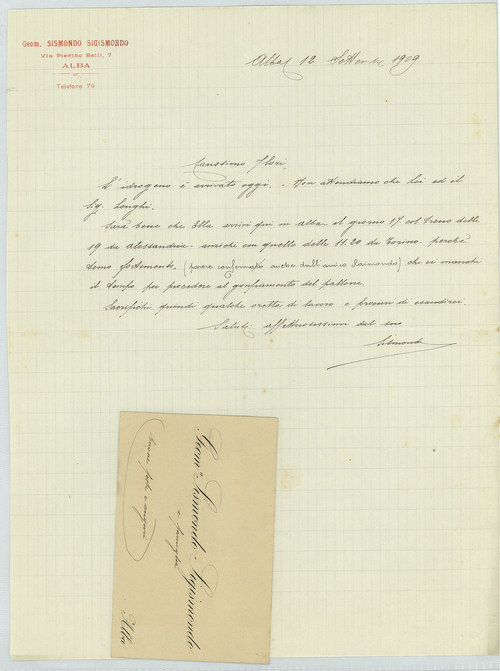 Geom. SISMONDO SIGISMONDO
Via Pierino Belli, 7
ALBA
Telefono 79
Alba, 12 Settembre 1909
Carissimo Flori,
L'idrogeno è arrivato oggi. - Non attendiamo che Lei ed il
Sig. Longhi.
Sarà bene che Ella arrivi qui in Alba il giorno 17 col treno delle
19 da Alessandria - anzichè con quello delle 11.20 da Torino. perchè
temo fortemente, (parere confermato anche dall'amico Raimondo) che ci manchi
il tempo per procedere al gonfiamento del pallone.
Sacrifichi quindi qualche oretta di lavoro e procuri di esaudirci.
Saluti affettuosissimi dal suo
Sismondo
Geom. Sismondo Sigismondo
e famiglia
buone feste e auguri
Alba